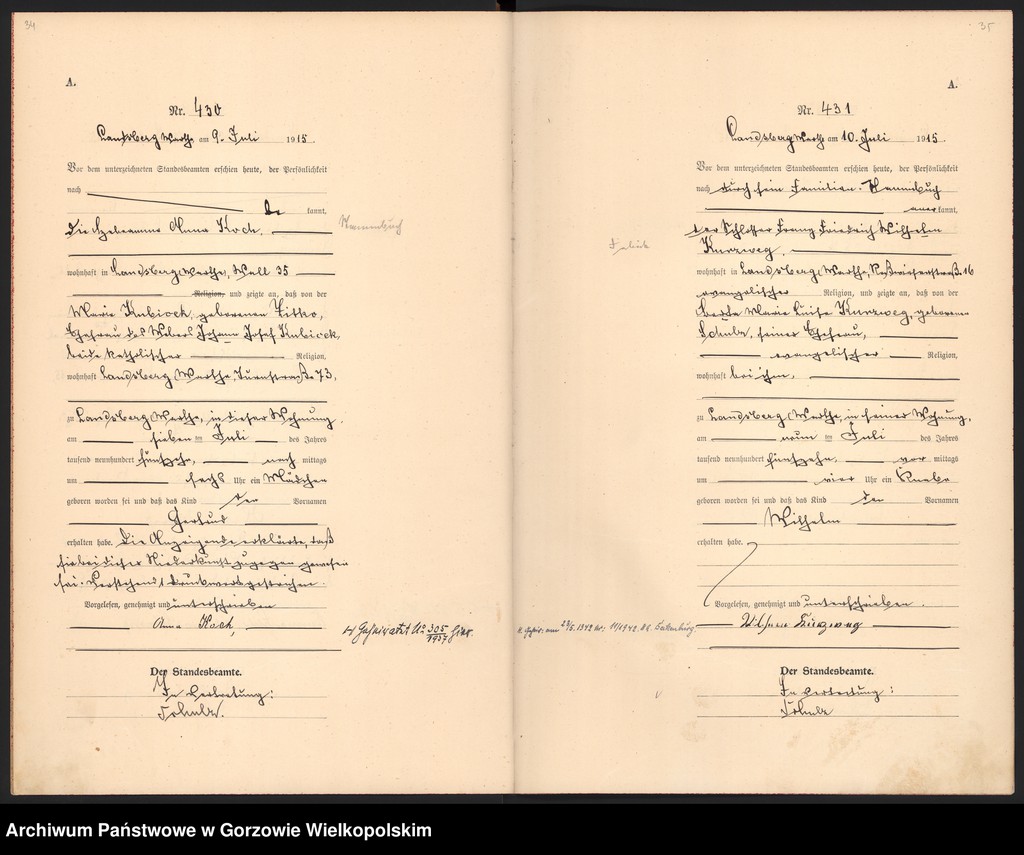 34
A.
Nr. 430
Landsberg Warthe am 9. Juli 1915.
Vor dem unterzeichneten Standesbeamten erschien heute, der Persönlichkeit
nach
be kannt,
die Hebamme Anna Koch,
wohnhaft in Landsberg Warthe, Wall 35
Religion, und zeigte an, daß von der
Marie Kubicek, geborenen Zitko,
Ehefrau des Webers Johann Josef Kubicek,
beide katholischer Religion,
wohnhaft Landsberg Warthe, Turnstraße 73,
zu Landsberg Warthe, in dieser Wohnung
am sieben ten Juli des Jahres
tausend neunhundert fünfzehn, nach mittags
um sechs Uhr ein Mädchen
geboren worden sei und daß das Kind den Vornamen
Gertrud
erhalten habe. Die Anzeigende erklärte, daß
sie bei dieser Niederkunft zugegen gewesen
sei. Vorstehend 1 Druckwort gestrichen.
Vorgelesen, genehmigt und unterschrieben
Anna Koch,
Der Standesbeamte.
In Vertretung:
Schulz.
Stammbuch
Geheiratet No 305/1937 hier.
35
A.
Nr. 431
Landsberg Warthe am 10. Juli 1915.
Vor dem unterzeichneten Standesbeamten erschien heute, der Persönlichkeit
nach durch sein Familien-Stammbuch
aner kannt,
der Schlosser Franz Friedrich Wilhelm
Kurzweg,
wohnhaft in Landsberg Warthe, 16
evangelischer Religion, und zeigte an, daß von der
Berta Marie Luise Kurzweg, geborenen
Schulz, seiner Ehefrau,
evangelischer Religion,
wohnhaft bei ihm,
zu Landsberg Warthe, in seiner Wohnung,
am neun ten Juli des Jahres
tausend neunhundert fünfzehn, vor mittags
um vier Uhr ein Knabe
geboren worden sei und daß das Kind den Vornamen
Wilhelm
erhalten habe.
Vorgelesen, genehmigt und unterschrieben.
Wilhelm Kurzweg
Der Standesbeamte.
In Vertretung:
Schulz
am 23/5. 1942 Nr. 11/1942
Archiwum Państwowe w Gorzowie Wielkopolskim